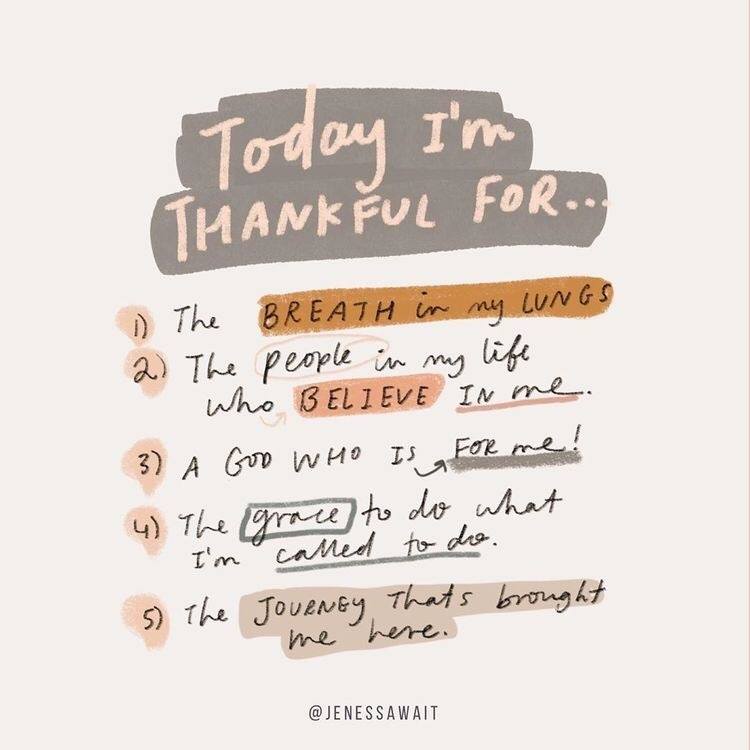 Today I'm
THANKFUL FOR...
1) The BREATH in my LUNGS
2) The people in my life
who BELIEVE IN me.
3) A GOD WHO IS FOR me!
4) The grace to do what
I'm called to do.
5) The JOURNEY Thats brought
me here.
@JENESSAWAIT